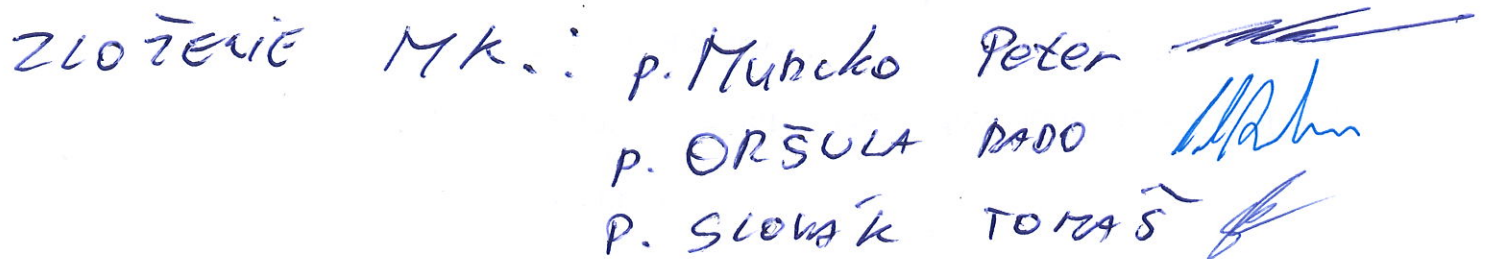 ZLOŽENIE MK.: p. Muncko Peter
p. ORŠULA RADO
P. SLOVÁK TOMAŠ